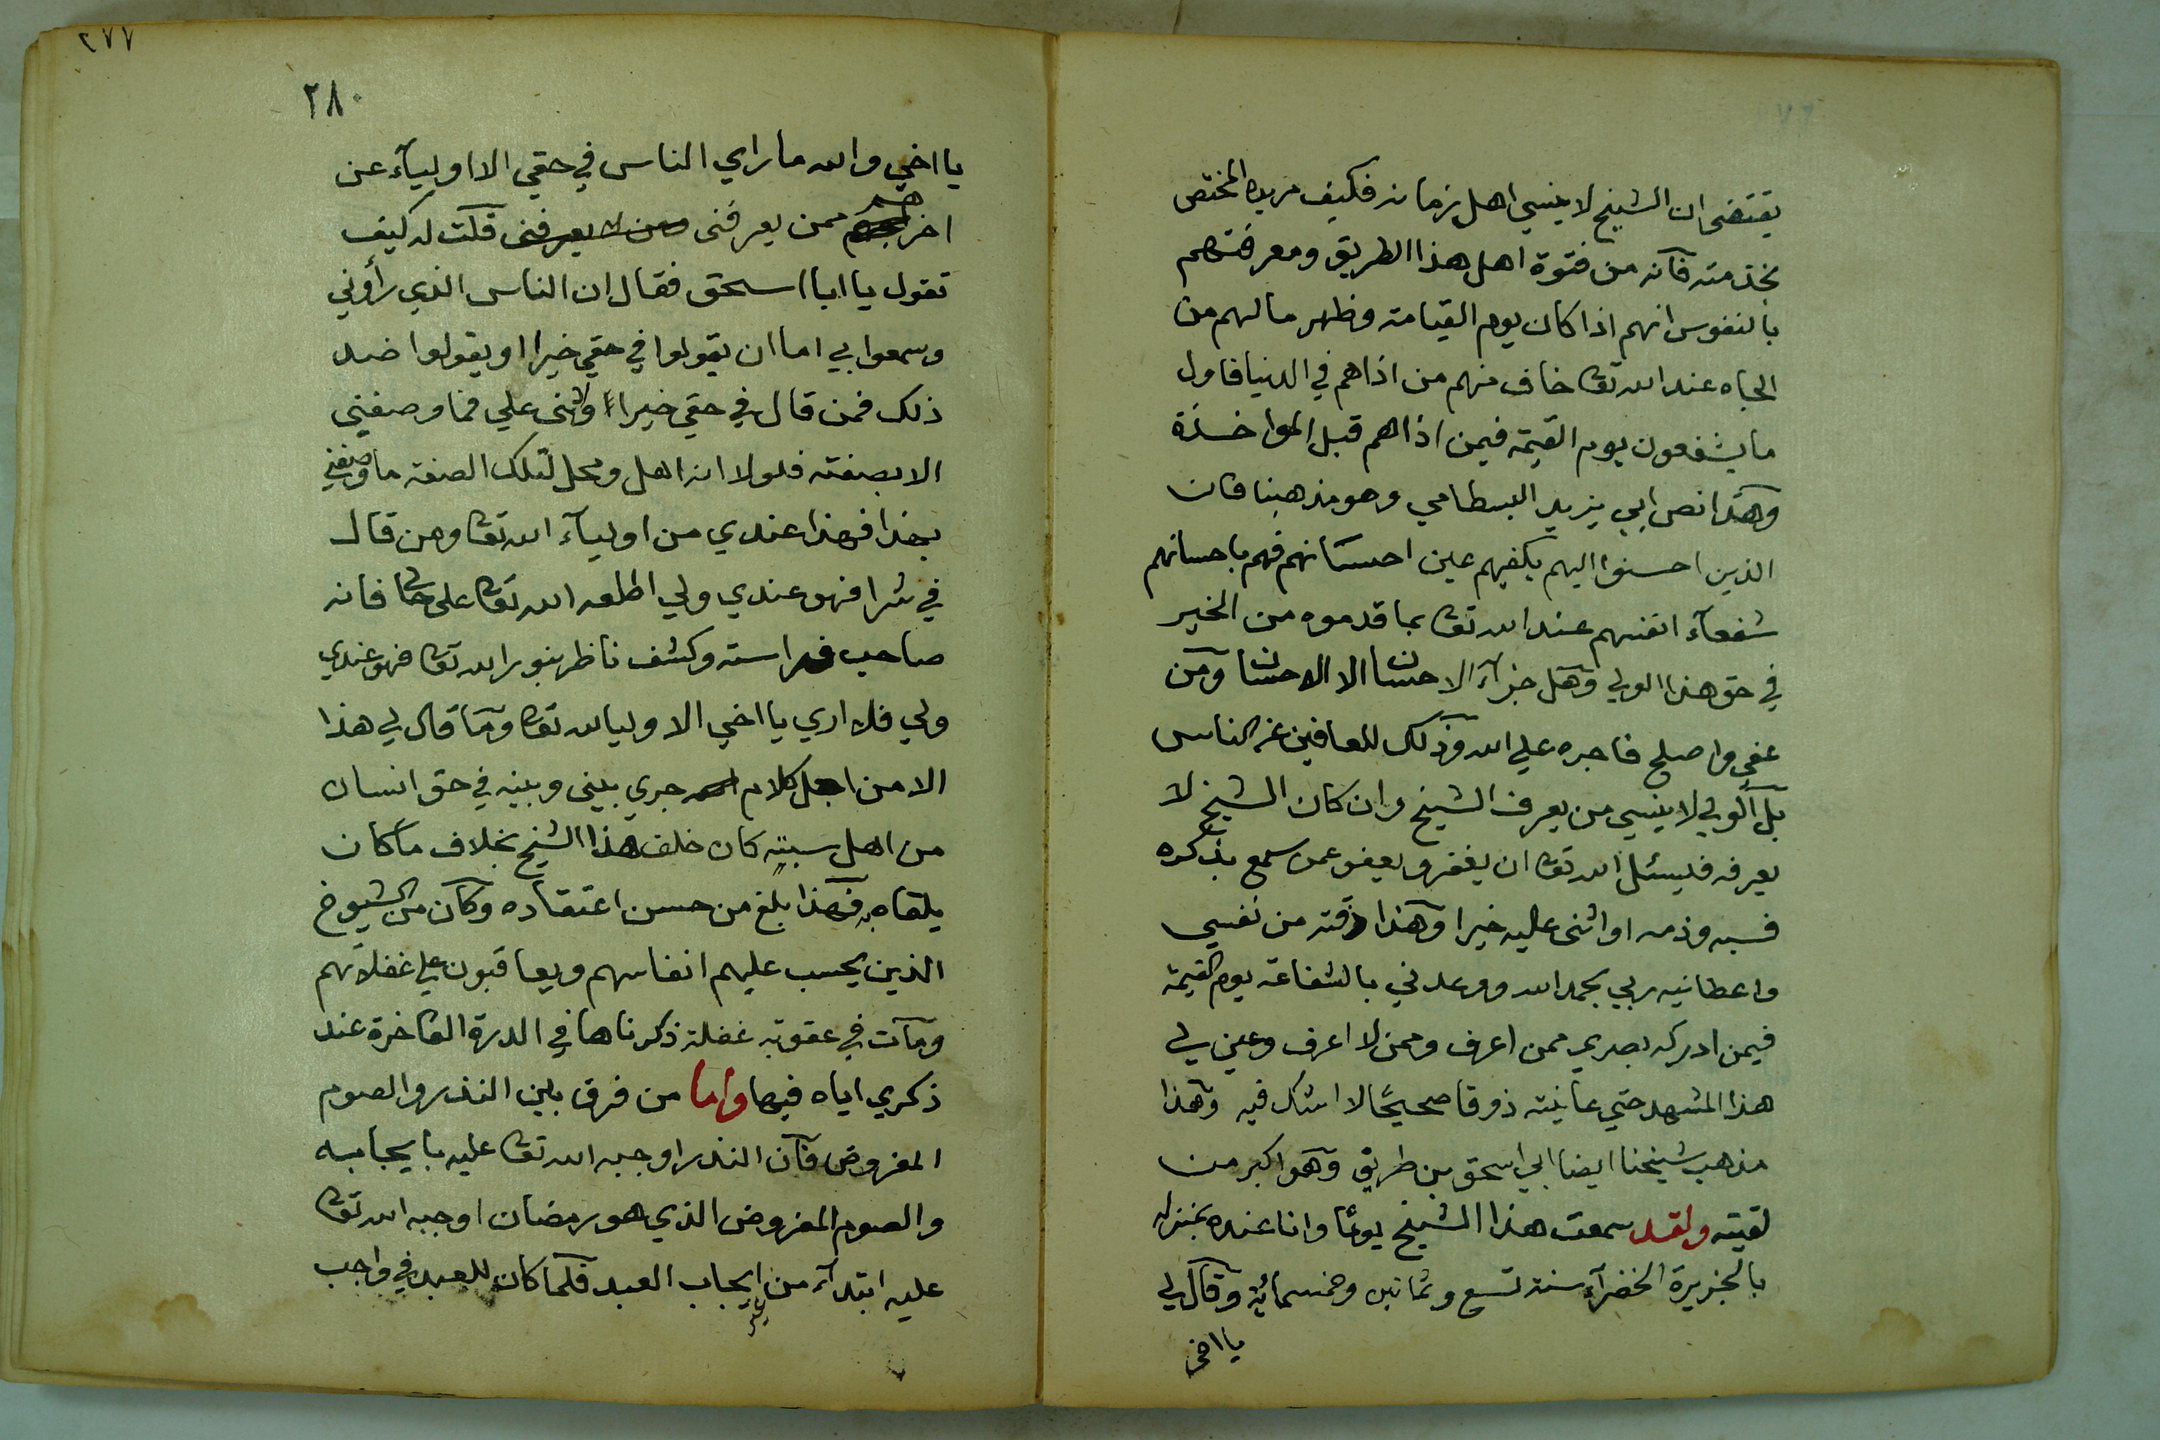 يقتضى ان الشيخ لا ينسي اهل زمانه فكيف مريده المختص
بخدمته فآنه من فتوة اهل هذا الطريق ومعرفتهم
بالنفوس انهم اذا كان يوم القيامة وظهر ما لهم من
الجاه عند الله تعا خاف منهم من اذاهم في الدنيا فاول
ما يشفعون يوم القيمة فيمن اذاهم قبل المواخذة
وهكذا نص ابي يزيد البسطامي وهو مذهبنا فان
الذين احسنوا اليهم يكفيهم عين احسانهم فهم باحسانهم
شفعآء انفسهم عند الله تعا بما قدموه من الخير
في حق هذا الولي وهل جزآء الاحسان الا الاحسان ومن
عفى واصلح فاجره علي الله وذلك للعافين عن الناس
بل الولي لا ينسي من يعرف الشيخ وان كان الشيخ لا
يعرفه فليسئل الله تعا ان يغفر و يعفو عمن سمع بذكره
فسبه وذمه او اثنى عليه خيرا وهذا ذقته من نفسي
واعطانيه ربي بحمد الله ووعدني بالشفاعة يوم القيمة
فيمن ادركه بصري ممن اعرف وممن لا اعرف وعين لي
هذا المشهد حتي عاينته ذوقا صحيحًا لا اشك فيه وهذا
مذهب شيخنا ايضا ابي اسحق بن طريق وهو اكبر من
لقيته ولقد سمعت هذا الشيخ يومًا وانا عنده بمنزله
بالجزيرة الخضرآء سنة تسع وثمانين وخمسمائة وقال لي
يا اخي
٢٧٧
٢٨٠
يا اخي والله ما راي الناس في حقي الا اوليآء عن
اخرهم ممن يعرفنى قلت له كيف
تقول يا ابا اسحق فقال ان الناس الذي رأوني
وسمعوا بي اما ان يقولوا في حقي خيرا او يقولوا ضد
ذلك فمن قال في حقي خيراً واثنى علي فما وصفني
الا بصفته فلولا انه اهل ومحل لتلك الصفة ما وصفني
بهذا فهذا عندي من اوليآء الله تعا ومن قال
في شرا فهو عندي ولي اطلعه الله تعا على حالى فانه
صاحب فراسته وكشف ناظر بنور الله تعا فهو عندي
ولي فلا اري يا اخي الا وليا لله تعا وما قال لي هذا
الا من اجل كلام جري بينى وبينه في حق انسان
من اهل سبتة كان خلف هذا الشيخ بخلاف ما كان
يلقاه به فهذا بلغ من حسن اعتقاده وكان من الشيوخ
الذين يحسب عليهم انفاسهم ويعاقبون على غفلاتهم
ومات في عقوبة غفلة ذكرناها في الدرة الفاخرة عند
ذكري اياه فيها واما من فرق بين النذر والصوم
المفروض فآن النذر اوجبه الله تعا عليه بايجابه
والصوم المفروض الذي هو رمضان اوجبه الله تعا
عليه ابتدآء من غير ايجاب العبد فلما كان للعبد في واجب